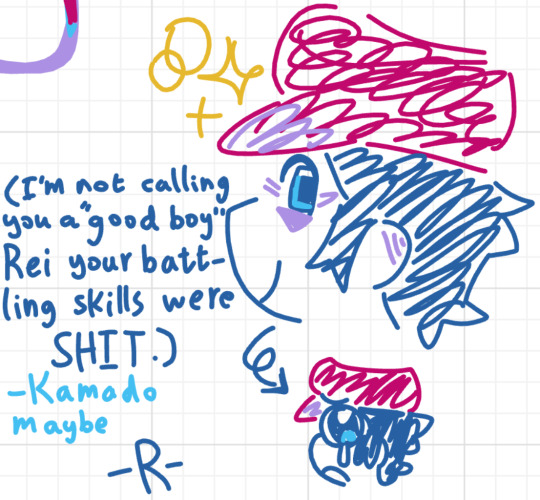 (I'm not calling
you a "good boy"
Rei your batt-
ling skills were
SHIT.)
-Kamado
maybe
-R-